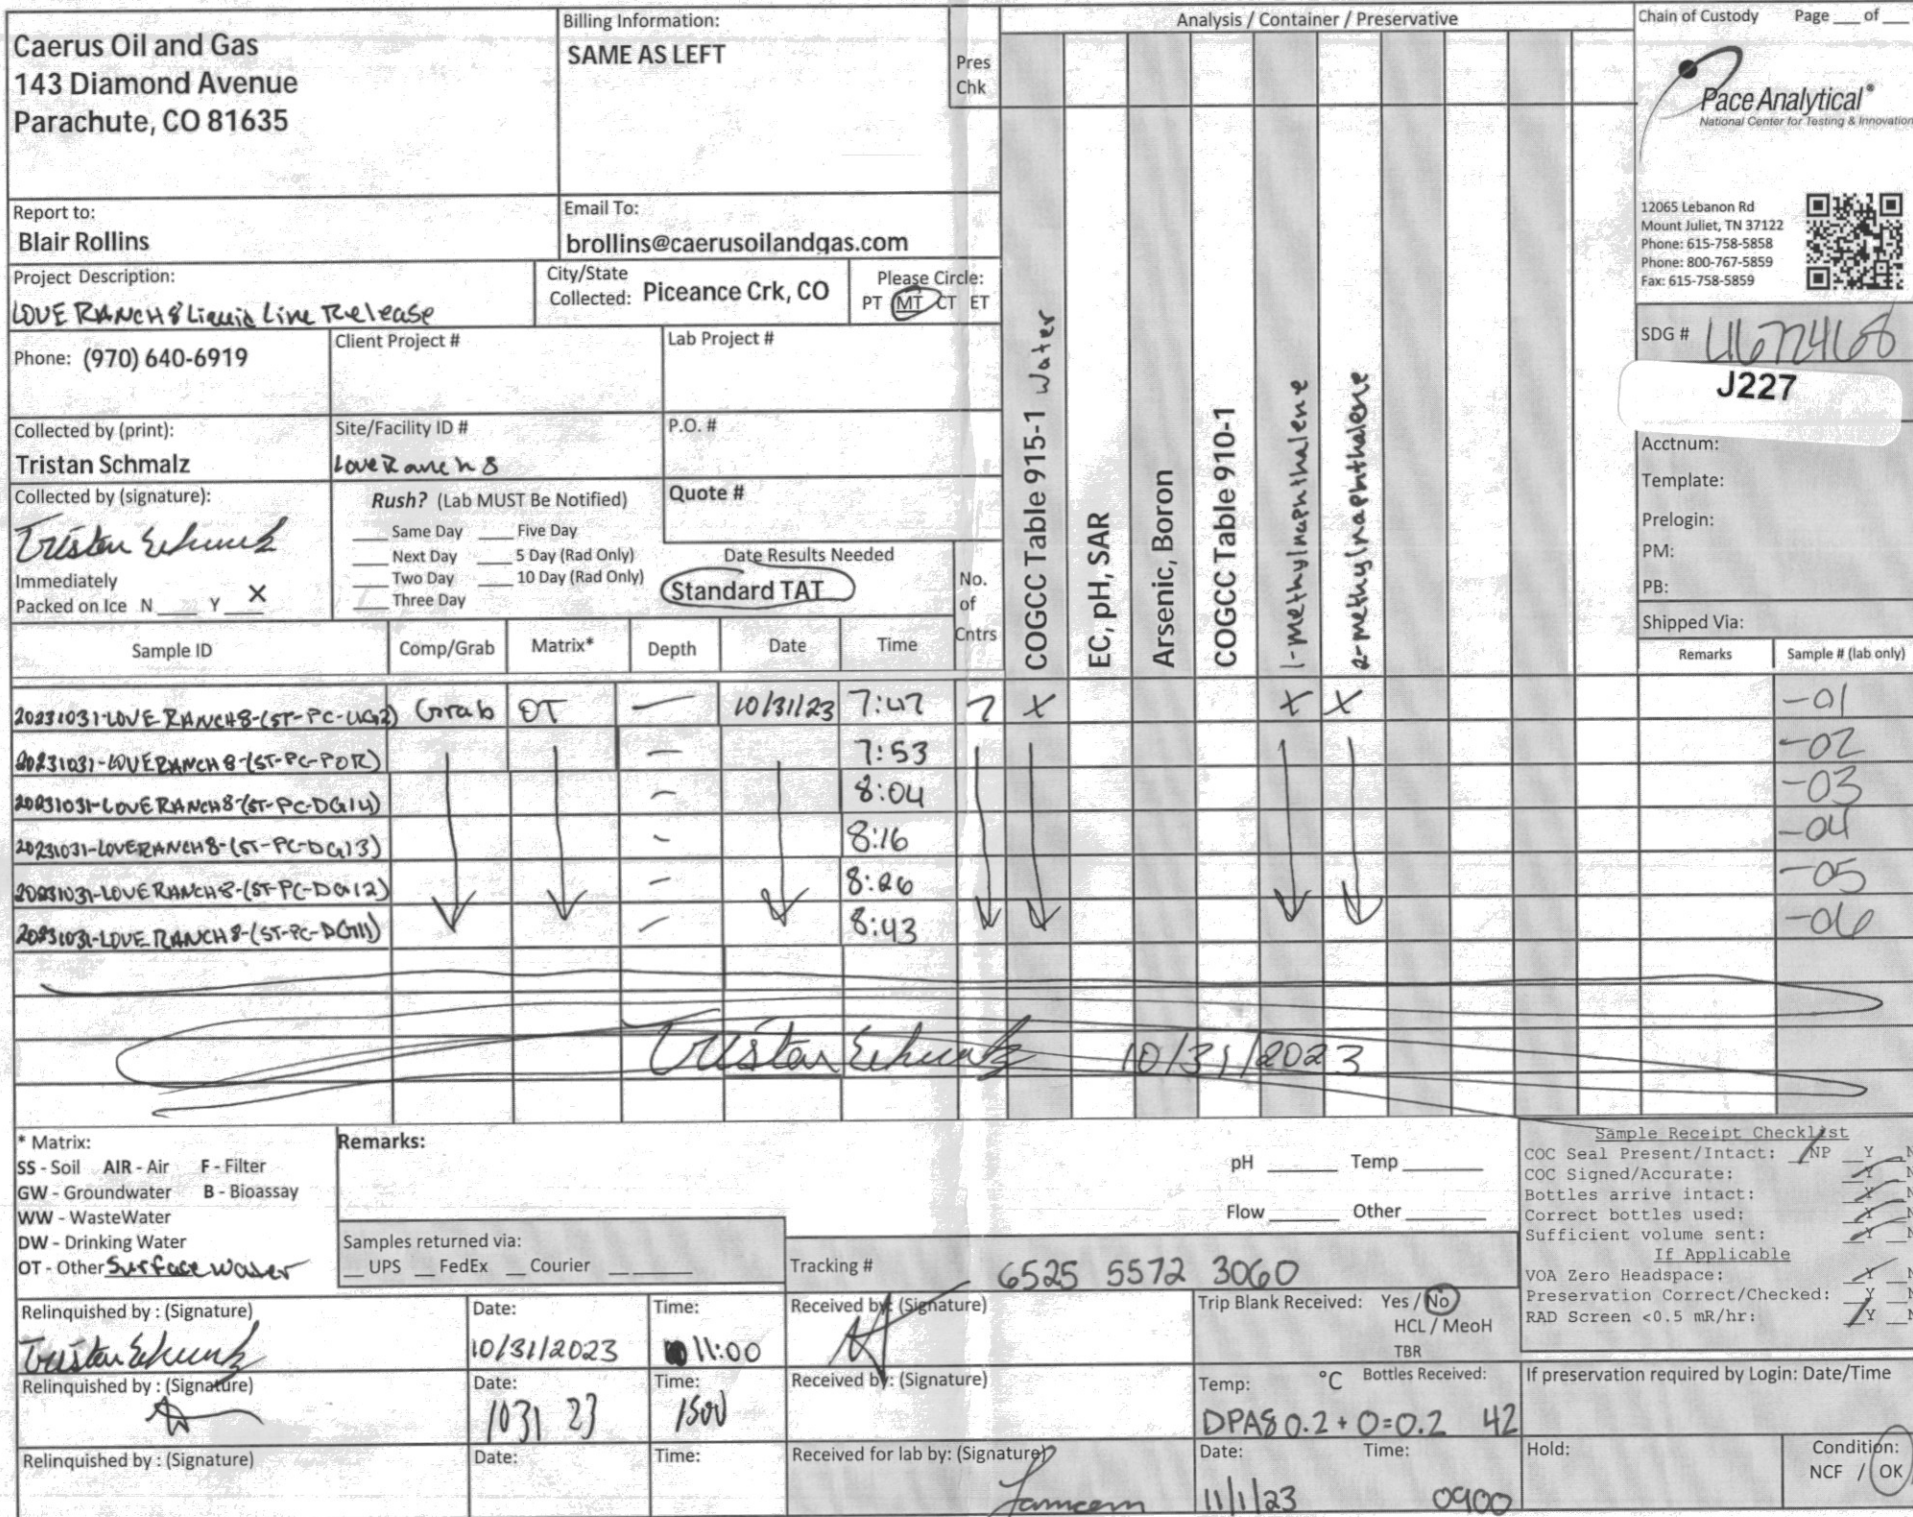 Caerus Oil and Gas
143 Diamond Avenue
Parachute, CO 81635
Billing Information:
SAME AS LEFT
Pres
Chk
Analysis / Container / Preservative
Chain of Custody Page ___ of ___
Pace Analytical®
National Center for Testing & Innovation
12065 Lebanon Rd
Mount Juliet, TN 37122
Phone: 615-758-5858
Phone: 800-767-5859
Fax: 615-758-5859
Report to:
Blair Rollins
Email To:
brollins@caerusoilandgas.com
Project Description:
LOVE RANCH 8 Liquid Line Release
City/State
Collected: Piceance Crk, CO
Please Circle:
PT MT CT ET
Phone: (970) 640-6919
Client Project #
Lab Project #
SDG # L1672468
J227
Collected by (print):
Tristan Schmalz
Site/Facility ID #
Love Ranch 8
P.O. #
Acctnum:
Template:
Prelogin:
PM:
PB:
Shipped Via:
Collected by (signature):
Immediately
Packed on Ice N ___ Y ___ X
Rush? (Lab MUST Be Notified)
___ Same Day ___ Five Day
___ Next Day ___ 5 Day (Rad Only)
___ Two Day ___ 10 Day (Rad Only)
___ Three Day
Quote #
Date Results Needed
Standard TAT
No.
of
Cntrs
COGCC Table 915-1 Water
EC, pH, SAR
Arsenic, Boron
COGCC Table 910-1
1-methylnaphthalene
2-methylnaphthalene
Sample ID Comp/Grab Matrix* Depth Date Time Remarks Sample # (lab only)
20231031-LOVE RANCH 8-(ST-PC-UG2) Grab OT — 10/31/23 7:47 7 X X X -01
20231031-LOVE RANCH 8-(ST-PC-POR) — 7:53 -02
20231031-LOVE RANCH 8-(ST-PC-DG14) — 8:04 -03
20231031-LOVE RANCH 8-(ST-PC-DG13) — 8:16 -04
20231031-LOVE RANCH 8-(ST-PC-DG12) — 8:26 -05
20231031-LOVE RANCH 8-(ST-PC-DG11) — 8:43 -06
10/31/2023
* Matrix:
SS - Soil AIR - Air F - Filter
GW - Groundwater B - Bioassay
WW - WasteWater
DW - Drinking Water
OT - Other Surface water
Remarks:
pH ___ Temp ___
Flow ___ Other ___
Samples returned via:
__ UPS __ FedEx __ Courier ______
Tracking # 6525 5572 3060
Sample Receipt Checklist
COC Seal Present/Intact: __NP __Y __N
COC Signed/Accurate: __Y __N
Bottles arrive intact: __Y __N
Correct bottles used: __Y __N
Sufficient volume sent: __Y __N
If Applicable
VOA Zero Headspace: __Y __N
Preservation Correct/Checked: __Y __N
RAD Screen <0.5 mR/hr: __Y __N
Relinquished by : (Signature)
Date:
10/31/2023
Time:
11:00
Received by: (Signature)
Trip Blank Received: Yes / No
HCL / MeoH
TBR
Relinquished by : (Signature)
Date:
1031 23
Time:
1500
Received by: (Signature)
Temp: °C Bottles Received:
DPA8 0.2 + 0 = 0.2 42
If preservation required by Login: Date/Time
Relinquished by : (Signature)
Date:
Time:
Received for lab by: (Signature)
Date: Time:
11/1/23 0900
Hold:
Condition:
NCF / OK